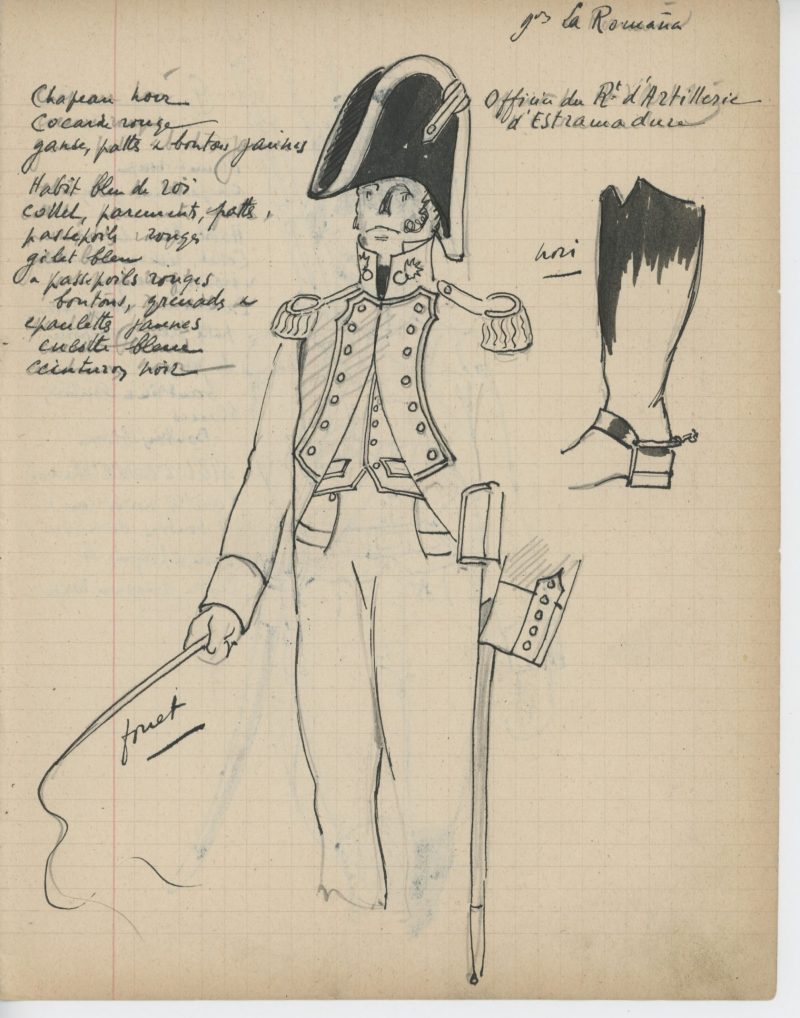 gal La Romaña
Officier du Rt d'Artillerie
d'Estramadure
Chapeau noir
Cocarde rouge
ganse, pattes & boutons jaunes
Habit bleu de roi
collet, parements, pattes,
passepoils rouges
gilet bleu
à passepoils rouges
boutons, grenades &
epaulettes jaunes
culotte bleue
Ceinturon noir
noir
fouet